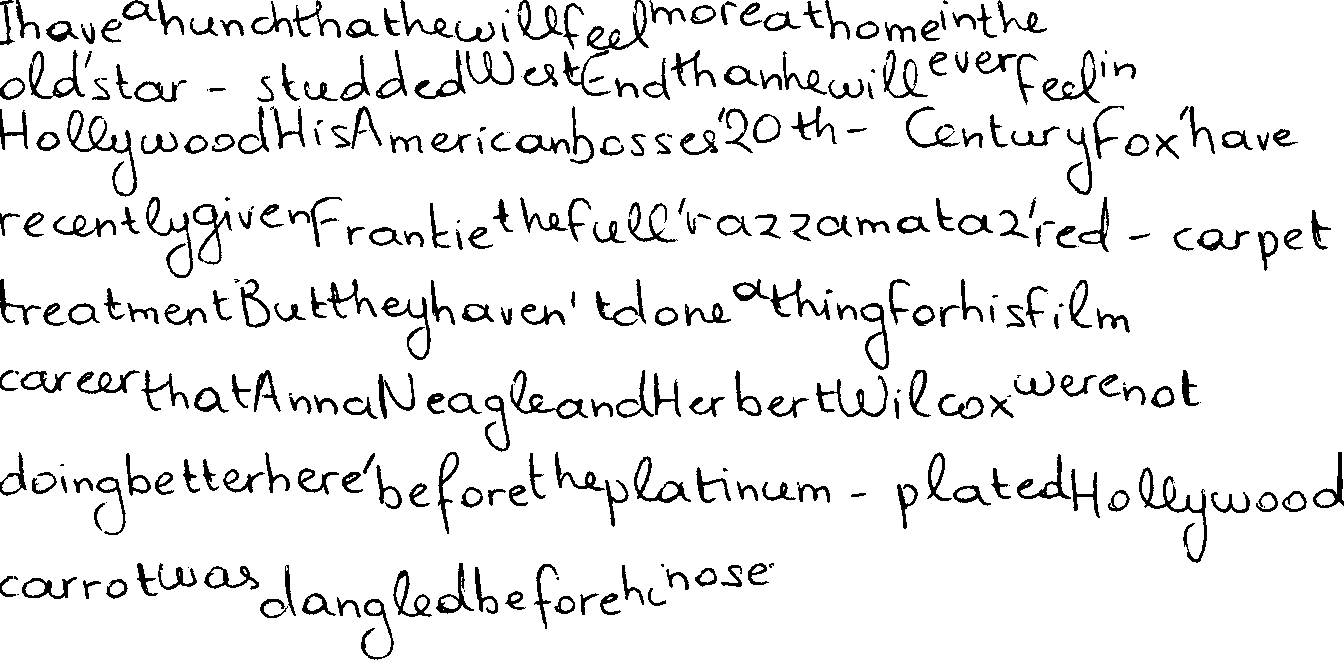 I have a hunch that he will feel more at home in the
old 'star - studded West End than he will ever feel in
Hollywood His American bosses '20th - Century Fox' have
recently given Frankie the full 'razzamataz' red - carpet
treatment But they haven't done a thing for his film
career that Anna Neagle and Herbert Wilcox were not
doing better here 'before the platinum - plated Hollywood
carrot was dangled before nose